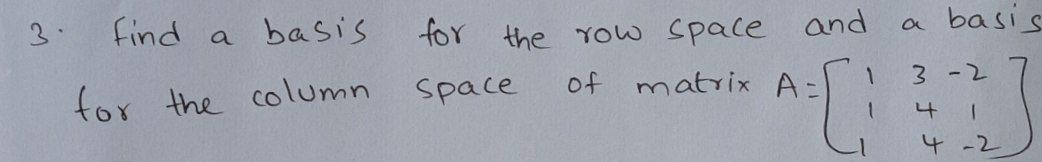 3. find a basis for the row space and a basis
for the column space of matrix A = [ 1 3 -2
1 4 1
1 4 -2 ]